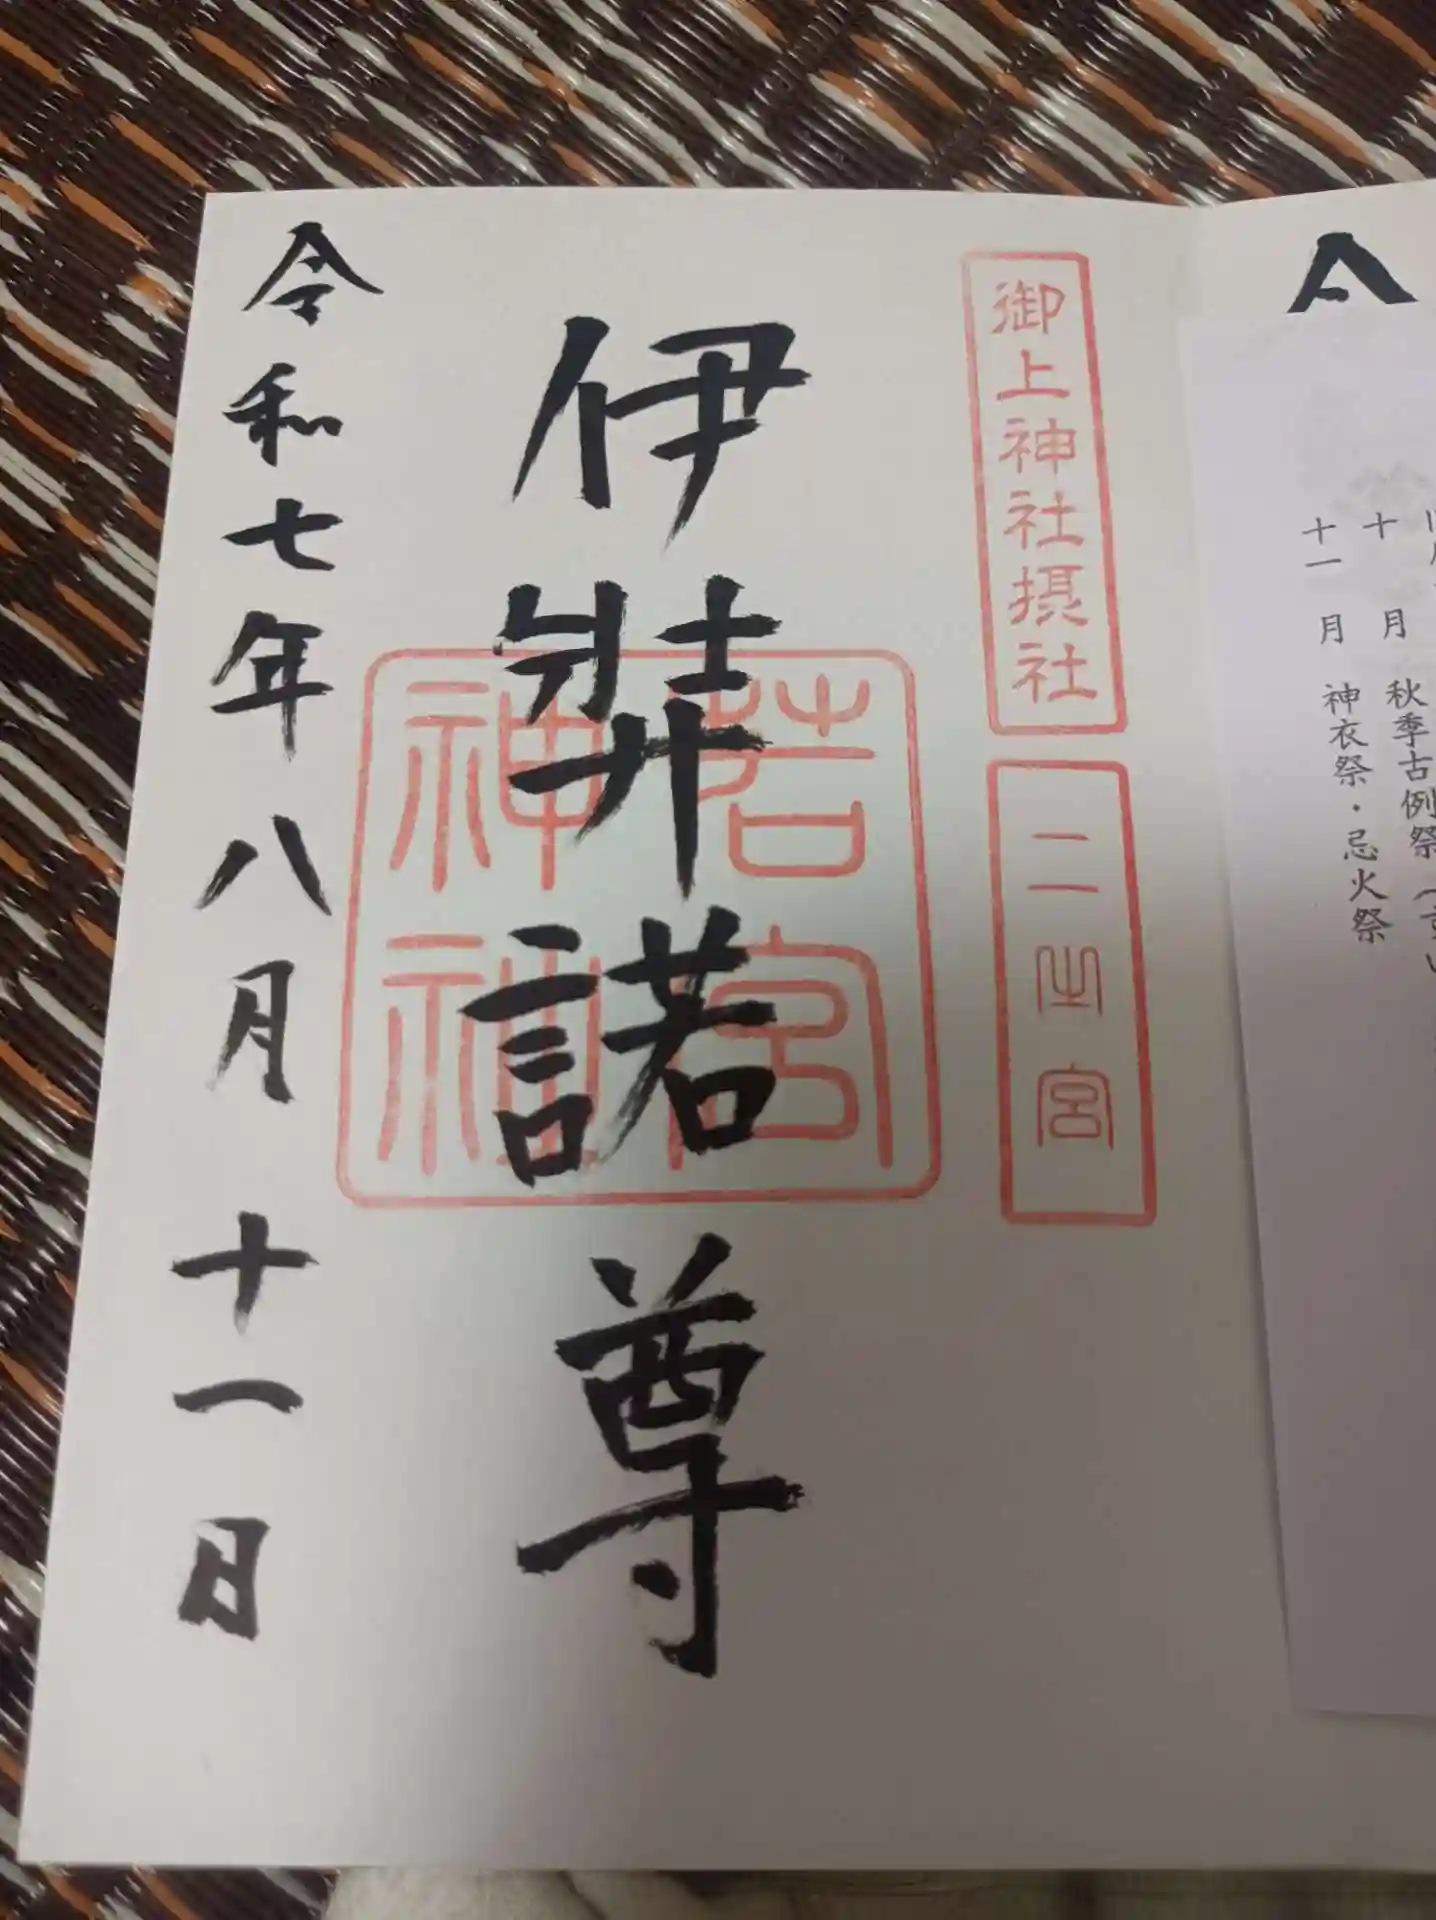 十月 秋季古例祭
十一月 神衣祭・忌火祭
御上神社摂社
二之宮
若宮神社
伊弉諾尊
令和七年八月十一日